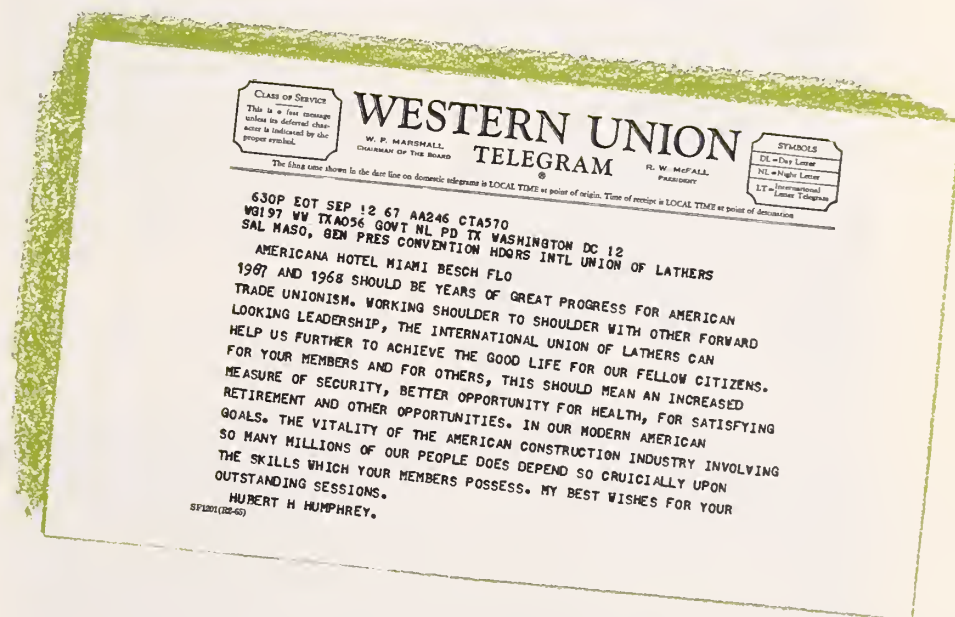 CLASS OF SERVICE
This is a fast message
unless its deferred char-
acter is indicated by the
proper symbol.
WESTERN UNION
TELEGRAM
®
W. P. MARSHALL
CHAIRMAN OF THE BOARD
R. W. McFALL
PRESIDENT
SYMBOLS
DL = Day Letter
NL = Night Letter
LT = International
Letter Telegram
The filing time shown in the date line on domestic telegrams is LOCAL TIME at point of origin. Time of receipt is LOCAL TIME at point of destination
630P EOT SEP 12 67 AA246 CTA570
WG197 WW TXA056 GOVT NL PD TX WASHINGTON DC 12
SAL MASO, GEN PRES CONVENTION HDQRS INTL UNION OF LATHERS
AMERICANA HOTEL MIAMI BESCH FLO
1967 AND 1968 SHOULD BE YEARS OF GREAT PROGRESS FOR AMERICAN
TRADE UNIONISM. WORKING SHOULDER TO SHOULDER WITH OTHER FORWARD
LOOKING LEADERSHIP, THE INTERNATIONAL UNION OF LATHERS CAN
HELP US FURTHER TO ACHIEVE THE GOOD LIFE FOR OUR FELLOW CITIZENS.
FOR YOUR MEMBERS AND FOR OTHERS, THIS SHOULD MEAN AN INCREASED
MEASURE OF SECURITY, BETTER OPPORTUNITY FOR HEALTH, FOR SATISFYING
RETIREMENT AND OTHER OPPORTUNITIES. IN OUR MODERN AMERICAN
GOALS. THE VITALITY OF THE AMERICAN CONSTRUCTION INDUSTRY INVOLVING
SO MANY MILLIONS OF OUR PEOPLE DOES DEPEND SO CRUICIALLY UPON
THE SKILLS WHICH YOUR MEMBERS POSSESS. MY BEST WISHES FOR YOUR
OUTSTANDING SESSIONS.
HUBERT H HUMPHREY.
SF1201(R2-65)